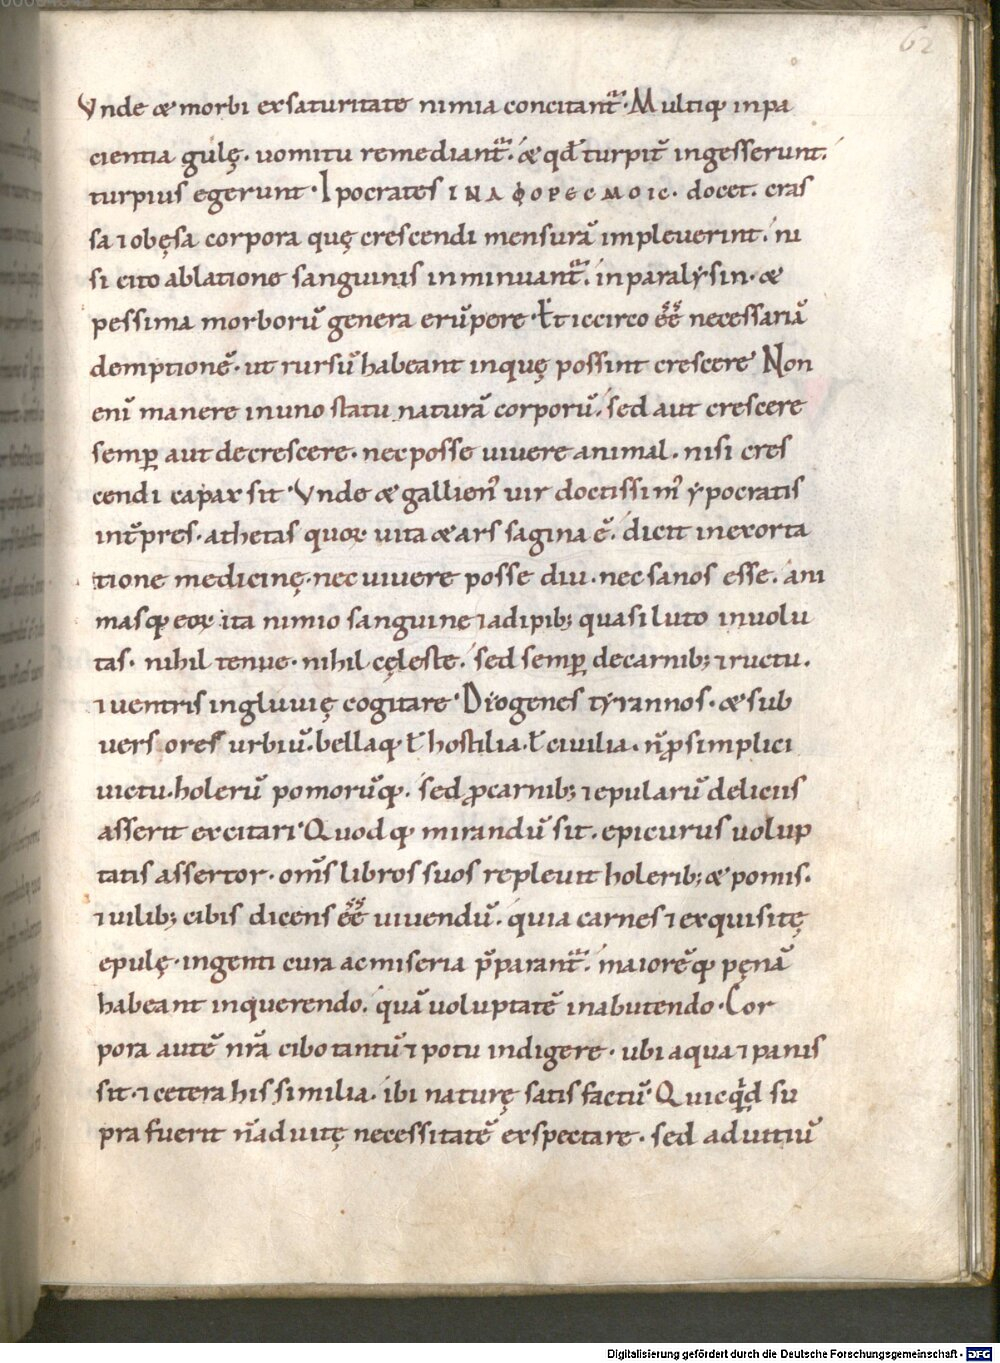 62
Vnde & morbi exsaturitate nimia concitant᷑. Multiq; inpa
cientia gulę. uomitu remediant᷑. & qđ turpit̄ ingesserunt.
turpius egerunt. Ipocrates ΙΝΑΦΟΡΕCΜΟΙC. docet. cras
sa ⁊ obęsa corpora quę crescendi mensurā impleuerint. ni
si cito ablatione sanguinis inminuant᷑. inparalẏsin. &
pessima morborū genera erūpere. Et iccirco ēē necessariā
demptionē. ut rursū habeant inquę possint crescere Non
enī manere inuno statu naturā corporū. sed aut crescere
semꝑ aut decrescere. nec posse uiuere animal. nisi cres
cendi capax sit. Vnde & gallien᾽ uir doctissim᾽ ẏpocratis
int̄pres. athetas quoꝝ uita & ars sagina ē. dicit inexorta
tione medicinę. nec uiuere posse diu. nec sanos esse. ani
masq; eoꝝ ita nimio sanguine ⁊ adipib; quasi luto inuolu
tas. nihil tenue. nihil cęleste. sed semꝑ decarnib; ⁊ ructu.
⁊ uentris ingluuię cogitare. Dẏogenes tẏrannos. & sub
uersores urbiū. bellaq; ł hostilia. ł ciuilia. n̄ ꝓ simplici
uictu. holerū pomorūq;. sed ꝓ carnib; ⁊ epularū deliciis
asserit excitari. Quodq; mirandū sit. epicurus uolup
tatis assertor. om̄s libros suos repleuit holerib; & pomis.
⁊ uilib; cibis dicens ēē uiuendū. quia carnes ⁊ exquisitę
epulę. ingenti cura ac miseria p̄parant᷑. maiorēq; pęnā
habeant inquerendo. quā uoluptatē inabutendo. Cor
pora autē nr̄a cibo tantū ⁊ potu indigere. ubi aqua ⁊ panis
sit. ⁊ cetera his similia. ibi naturę satis factū Quicqͥd su
pra fuerit n̄ ad uitę necessitatē exspectare. sed ad uitiū
Digitalisierung gefördert durch die Deutsche Forschungsgemeinschaft - DFG